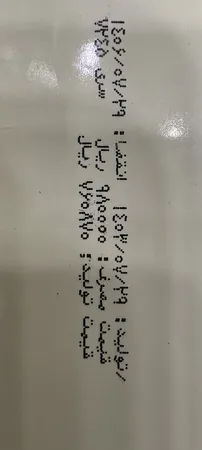 تولید: ۱۴۰۳/۰۷/۲۹ انقضا: ۱۴۰۶/۰۷/۲۹
قیمت مصرف: ۹۸۰۰۰۰ ریال سری
قیمت تولید: ریال